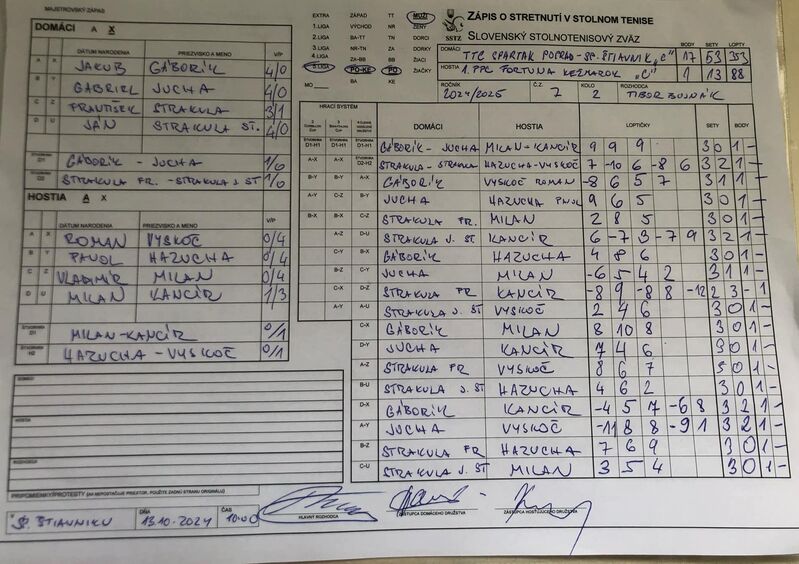 MAJSTROVSKÝ ZÁPAS
DOMÁCI A X
DÁTUM NARODENIA PRIEZVISKO A MENO V/P
A X JAKUB GÁBORÍK 4/0
B Y GABRIEL JUCHA 4/0
C Z FRANTIŠEK STRAKULA 3/1
D U JÁN STRAKULA ST. 4/0
ŠTVORHRA D1 GÁBORÍK - JUCHA 1/0
ŠTVORHRA D2 STRAKULA FR. - STRAKULA J. ST 1/0
HOSTIA A X
DÁTUM NARODENIA PRIEZVISKO A MENO V/P
A X ROMAN VYSKOČ 0/4
B Y PAVOL HAZUCHA 0/4
C Z VLADIMÍR MILAN 0/4
D U MILAN KANCÍR 1/3
ŠTVORHRA D1 MILAN-KANCÍR 0/1
ŠTVORHRA H2 HAZUCHA - VYSKOČ 0/1
DOMÁCI
HOSTIA
ROZHODCA
PRIPOMIENKY/PROTESTY (AK NEPOSTAČUJE PRIESTOR, POUŽITE ZADNÚ STRANU ORIGINÁLU)
V SP. ŠTIAVNIKU DŇA 13.10.2024 ČAS 10:00
HLAVNÝ ROZHODCA
ZÁSTUPCA DOMÁCEHO DRUŽSTVA
ZÁSTUPCA HOSŤUJÚCEHO DRUŽSTVA
EXTRA ZÁPAD TT MUŽI
1.LIGA VÝCHOD NR ŽENY
2.LIGA BA-TT TN DORCI
3.LIGA NR-TN ZA DORKY
4.LIGA ZA-BB BB ŽIACI
5.LIGA PO-KE PO ŽIAČKY
MO BA KE
SSTZ
ZÁPIS O STRETNUTÍ V STOLNOM TENISE
SLOVENSKÝ STOLNOTENISOVÝ ZVÄZ
BODY SETY LOPTY
DOMÁCI TTC SPARTAK POPRAD-SP. ŠTIAVNIK „C" 17 53 353
HOSTIA 1. PPC FORTUNA KEŽMAROK „C" 1 13 88
ROČNÍK 2024/2025 Č.Z. 7 KOLO 2 ROZHODCA TIBOR
HRACÍ SYSTÉM
DOMÁCI HOSTIA LOPTIČKY SETY BODY
D1-H1 GÁBORÍK - JUCHA MILAN-KANCÍR 9 9 9 3 0 1 -
A-X D2-H2 STRAKULA - STRAKULA HAZUCHA-VYSKOČ 7 -10 6 -8 6 3 2 1 -
B-Y GÁBORÍK VYSKOČ ROMAN -8 6 5 7 3 1 1 -
JUCHA HAZUCHA PAVOL 9 6 5 3 0 1 -
STRAKULA FR. MILAN 2 8 5 3 0 1 -
D-U STRAKULA J. ST KANCÍR 6 -7 3 -7 9 3 2 1 -
B-Y GÁBORÍK HAZUCHA 4 8 6 3 0 1 -
C-Y JUCHA MILAN -6 5 4 2 3 1 1 -
D-Z STRAKULA FR KANCÍR -8 9 -8 8 -12 2 3 - 1
A-U STRAKULA J. ST VYSKOČ 2 4 6 3 0 1 -
C-X GÁBORÍK MILAN 8 10 8 3 0 1 -
D-Y JUCHA KANCÍR 7 4 6 3 0 1 -
A-Z STRAKULA FR VYSKOČ 8 6 7 3 0 1 -
B-U STRAKULA J. ST HAZUCHA 4 6 2 3 0 1 -
D-X GÁBORÍK KANCÍR -4 5 7 -6 8 3 2 1 -
A-Y JUCHA VYSKOČ -11 8 8 -9 1 3 2 1 -
B-Z STRAKULA FR HAZUCHA 7 6 9 3 0 1 -
C-U STRAKULA J. ST MILAN 3 5 4 3 0 1 -